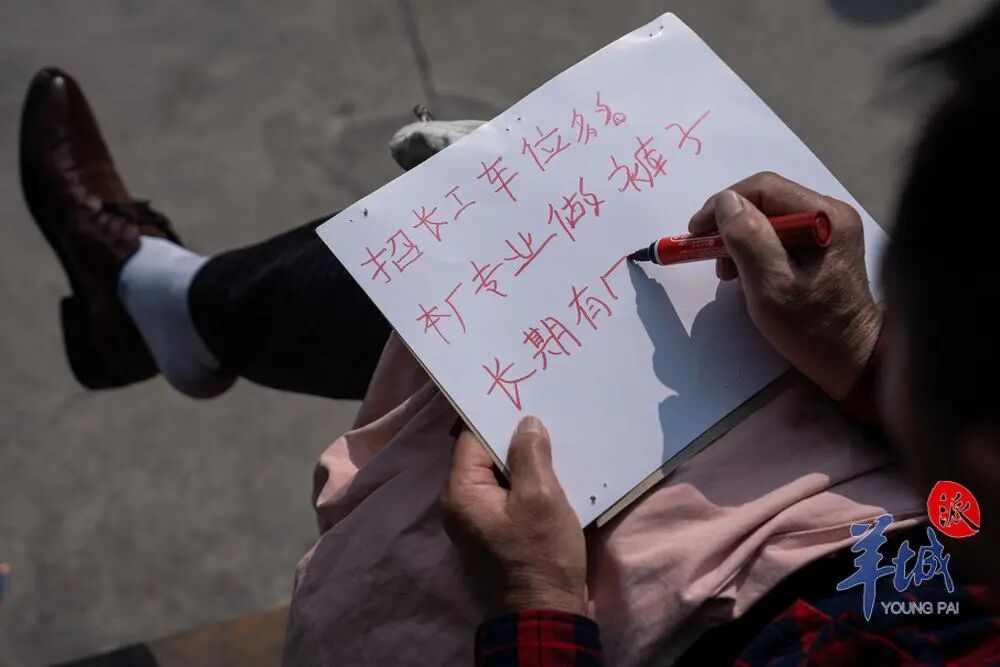 招长工车位多名
本厂专业做裤子
长期有
羊城派
YOUNG PAI